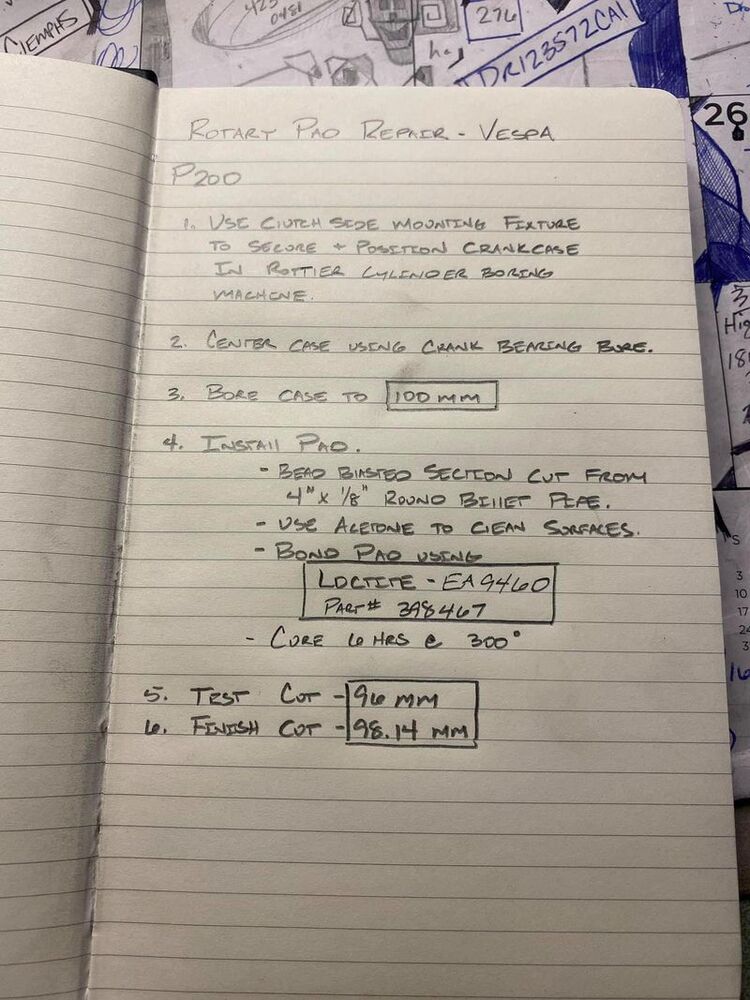 CIEMPHS
423
0481
276
ha,
DR123572CA1
26
ROTARY PAD REPAIR - VESPA
P200
1. USE CLUTCH SIDE MOUNTING FIXTURE
TO SECURE + POSITION CRANKCASE
IN ROTTIER CYLINDER BORING
MACHINE.
2. CENTER CASE USING CRANK BEARING BORE.
3. BORE CASE TO 100 MM
4. INSTALL PAD.
- BEAD BLASTED SECTION CUT FROM
4" X 1/8" ROUND BILLET PIPE.
- USE ACETONE TO CLEAN SURFACES.
- BOND PAD USING
LOCTITE - EA9460
PART# 398467
- CURE 6 HRS @ 300°
5. TEST CUT - 96 MM
6. FINISH CUT - 98.14 MM
3
Hig
181
S
3
10
17
24
3
16